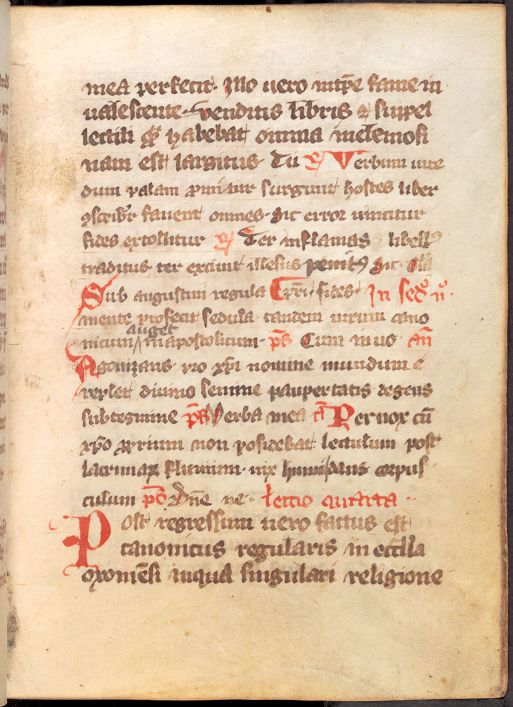 mea perfecit. Illo vero intpe fame in
valescente. venditis libris & suppel
lectili q habebat omnia inelemosi
nam est largitus. Tu R Verbum vite
dum palam promitur surgunt hostes liber
conscribr favent omnes. hic error vincitur
fides extollitur R Ter inflamas libell
traditus. ter exivit illesus penitus hic. Gla
Sub augustini regula Cpri. fides. In sedo no.
mente profecit sedula tandem virum cano
auget
nicum in apostolicum. ps Cum invo. an
Agonizans pro xpi nomine mundum
replet divino semine paupertatis degens
sub tegmine ps Verba mea a Pernox cu
xpo proprium non posidebat lectulum post
lacrimar flumium. vix humi dans corpus
culum ps Dne ne. Lectio quarta.
Post regressum vero factus est
canonicus regularis in eccla
oxomensi in qua singulari religione